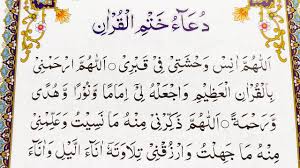 دُعَآءُ خَتْمِ الْقُرْاٰنِ
اَللّٰهُمَّ اٰنِسْ وَحْشَتِيْ فِيْ قَبْرِيْ ○ اَللّٰهُمَّ ارْحَمْنِيْ
بِالْقُرْاٰنِ الْعَظِيْمِ وَاجْعَلْهُ لِيْ اِمَامًا وَّنُوْرًا وَّهُدًى
وَّرَحْمَةً ○ اَللّٰهُمَّ ذَكِّرْنِيْ مِنْهُ مَا نَسِيْتُ وَعَلِّمْنِيْ
مِنْهُ مَا جَهِلْتُ وَارْزُقْنِيْ تِلَاوَتَهٗ اٰنَآءَ الَّيْلِ وَاٰنَآءَ